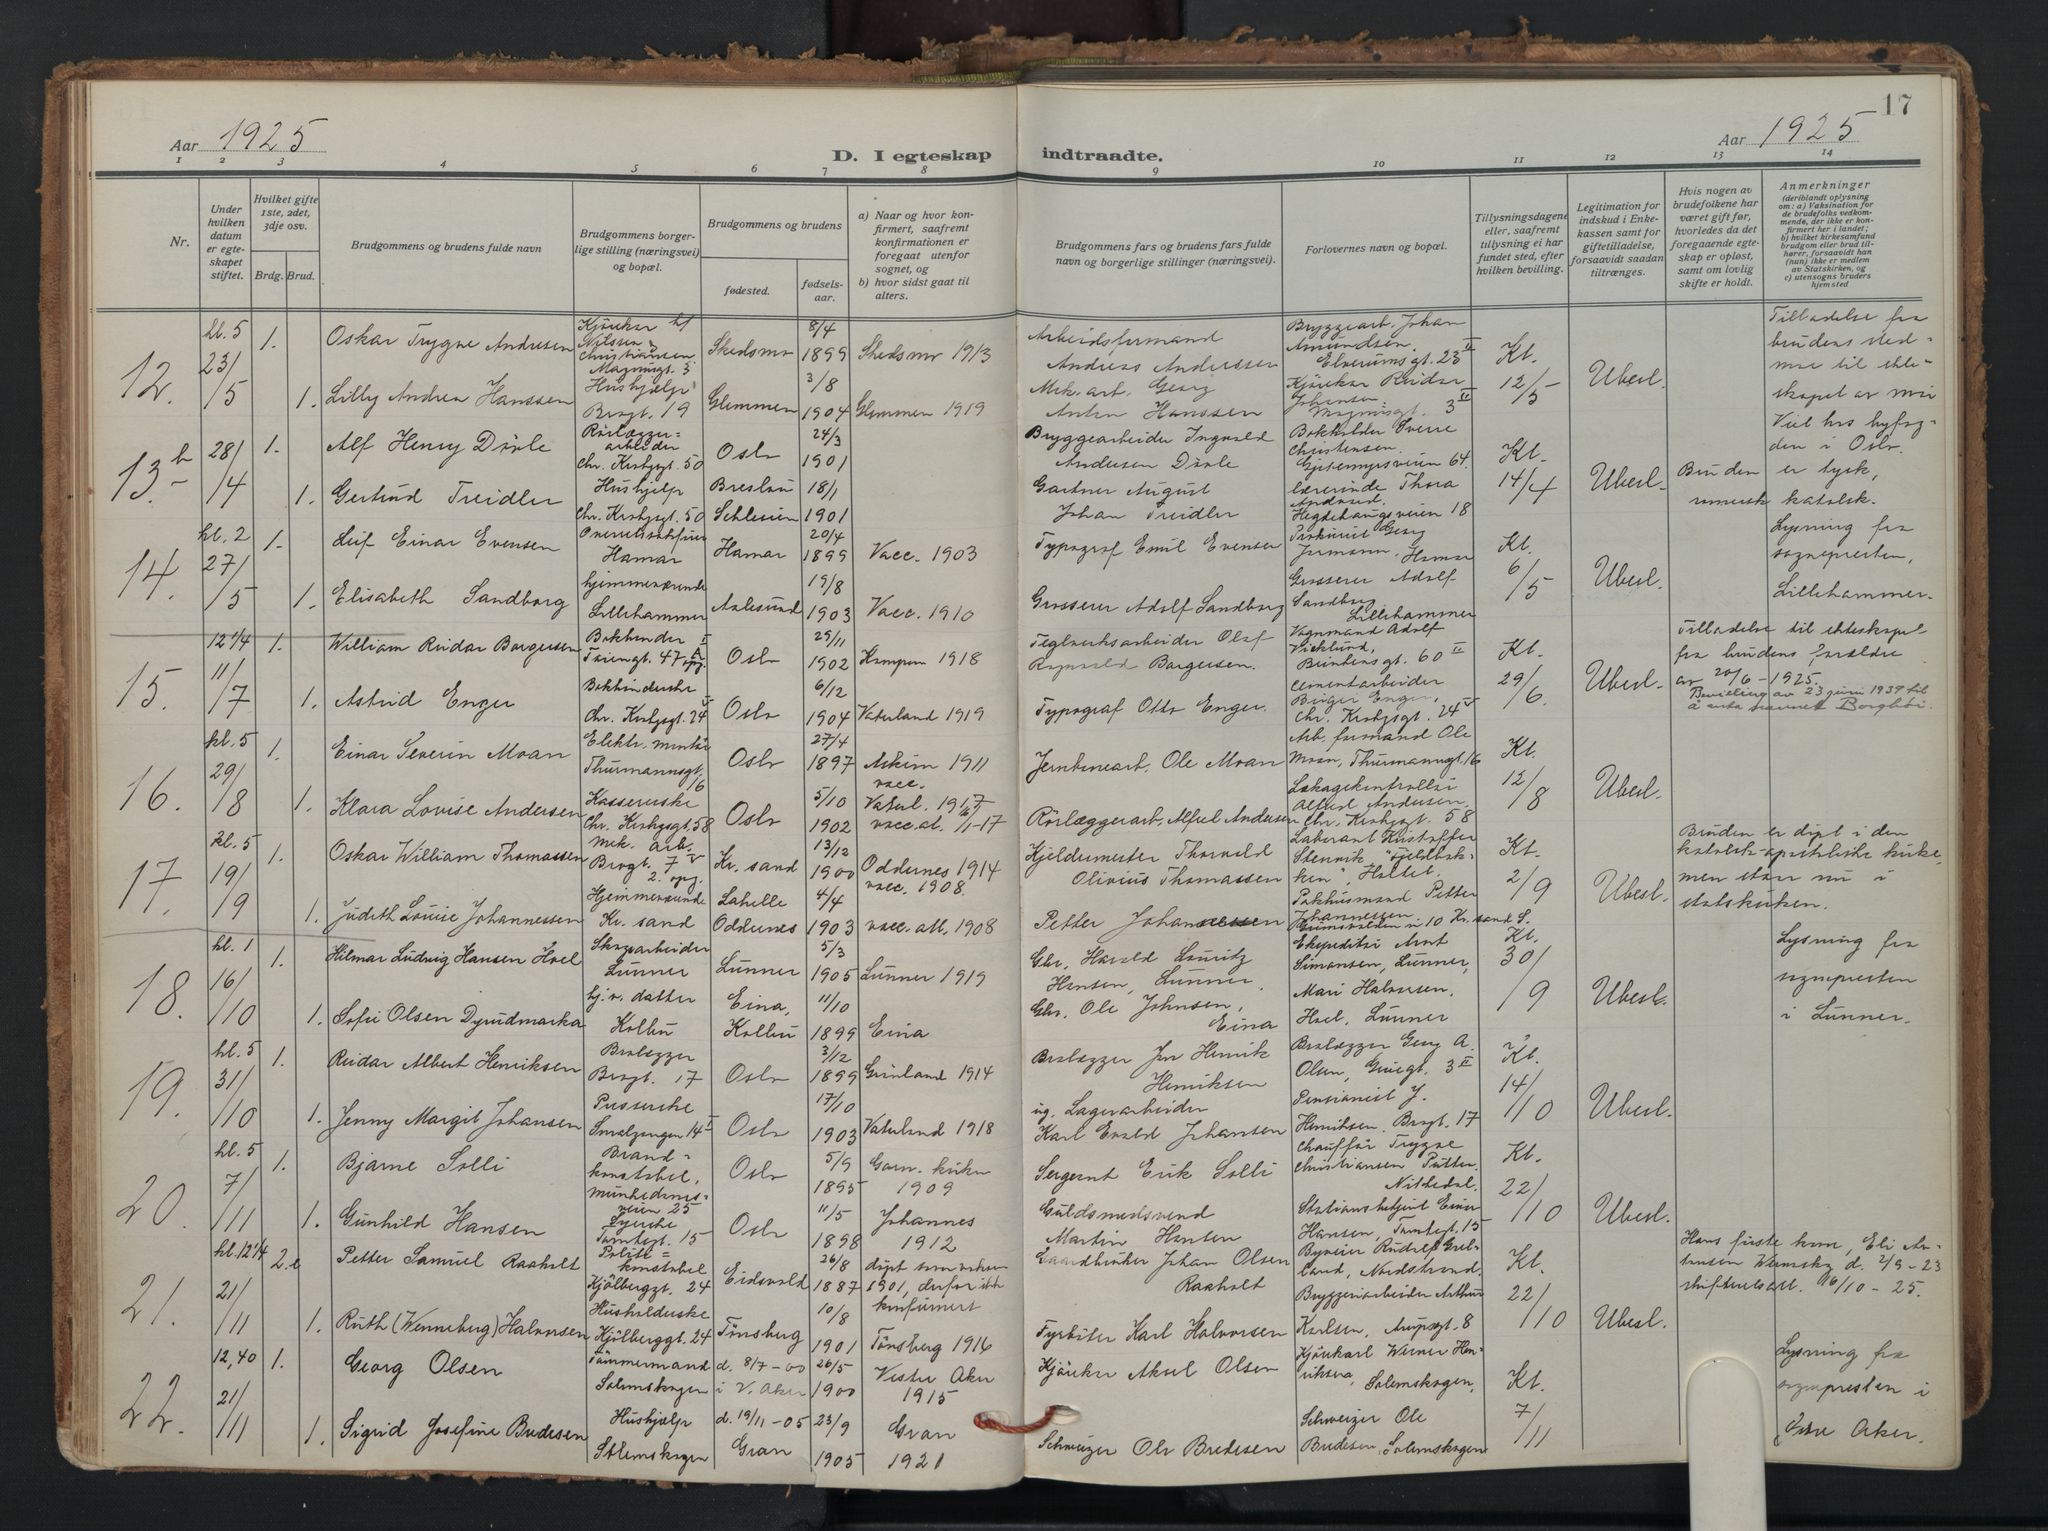 17
Aar 1925
D. I egteskap
indtraadte.
Aar 1925
1 2 3 4 5 6 7 8 9 10 11 12 13 14
Nr.
Under hvilken datum er egteskapet stiftet.
Hvilket gifte 1ste, 2det, 3dje osv.
Brdg. Brud.
Brudgommens og brudens fulde navn
Brudgommens borgerlige stilling (næringsvei) og bopæl.
Brudgommens og brudens
fødested.
fødselsaar.
a) Naar og hvor konfirmert, saafremt konfirmationen er foregaat utenfor sognet, og
b) hvor sidst gaat til alters.
Brudgommens fars og brudens fars fulde navn og borgerlige stillinger (næringsvei).
Forlovernes navn og bopæl.
Tillysningsdagene eller, saafremt tillysning ei har fundet sted, efter hvilken bevilling.
Legitimation for indskud i Enkekassen samt for giftetilladelse, forsaavidt saadan tiltrænges.
Hvis nogen av brudefolkene har været gift før, hvorledes da det foregaaende egteskap er opløst, samt om lovlig skifte er holdt.
Anmerkninger (deriblandt oplysning om: a) Vaksination for de brudefolks vedkommende, der ikke er konfirmert her i landet; b) hvilket kirkesamfund brudgom eller brud tilhører, forsaavidt han (hun) ikke er medlem av Statskirken, og c) utensogns bruders hjemsted
12. kl. 5 23/5 1. Oskar Trygve Andresen Skedsmo 8/4 1899 Skedsmo 1913 Arbeidsformand Andreas Anderssen Bryggearb. Johan Amundsen, Elverumsgt. 23 II Kl. 12/5 Ubesl.
1. Lilly Andrea Hanssen Hushjælp Brogt. 19 Glemmen 3/8 1904 Glemmen 1919 Mek. arb. Georg Anton Hanssen Kjørekar Reidar Johansen Magnusgt. 3 II
Tilladelse fra
13. b 28/4 1. Alf Henry Dørle Rørlæggerarbeider Chr. Krohgsgt. 50 Oslo 24/3 1901 Bryggearbeider Ingvald Andersen Dørle Bokholder Sverre Christensen, Kl. 14/4 Ubesl.
1. Gertrud Treidler Hushjelp Chr. Krohgsgt. 50 Breslau Schlesien 18/1 1901 Gartner August Johan Treidler Lærerinde Thora Hegdehaugsveien 18
Viet hos byfogden i Oslo. Bruden er tysk, romersk katolsk.
14. kl. 2 27/5 1. Leif Einar Evensen Hamar Hamar 20/4 1899 Vacc. 1903 Typograf Emil Evensen Hamar Kl. 6/5 Ubesl.
1. Elisabeth Sandborg hjemmeværende Lillehammer Aalesund 19/8 1903 Vacc. 1910 Grosserer Adolf Sandborg Grosserer Adolf Sandborg, Lillehammer
Lysning fra sognepresten, Lillehammer.
15. 12 1/4 11/7 1. William Reidar Borgersen Bokbinder Oslo 29/11 1902 Kampen 1918 Teglverksarbeider Olaf Ragnvald Borgersen. Vognmand Adolf Kl. 29/6. Ubesl.
1. Astrid Enger Bokbinderske Chr. Krohgsgt. 24 V Oslo 6/12 1904 Vaterland 1919 Typograf Otto Enger. Cementarbeider Birger Enger, Chr. Krohgsgt. 24 V
Tilladelse til ekteskapet fra brudens forældre av 20/6 - 1925.
Bevilling av 23 juni 1937 til å anta navnet
16. kl. 5 29/8 1. Einar Severin Moan Elektr. montør Thurmannsgt. 16 Oslo 27/4 1897 Askim 1911 vacc. Jerntomtarb. Ole Moan Arb. formand Ole Moan, Thurmannsgt. 16 Kl. 12/8 Ubesl.
1. Klara Lovise Andersen Kassererske Chr. Krohgsgt. 58 Oslo 5/10 1902 Vaterl. 1917 Rørlæggerarb. Alfred Andersen Alfred Andersen, Chr. Krohgsgt. 58
17. kl. 5 19/9 1. Oskar William Thomassen Mek. arb. Brogt. 7 V 2. opg. Kr. sand 13/12 1900 Oddernes 1914 vacc. 1908. Kjeldemester Thorvald Olivius Thomassen Laborant Kristoffer Kl. 2/9 Ubesl.
1. Judith Louise Johannessen Hjemmeværende Kr. sand Oddernes 4/4 1903 vacc. att. 1908 Petter Johannessen Pakhusmand Petter Johannessen 10 Kr. sand S.
Bruden er døpt i den katolsk-apostoliske kirke, men staar nu i statskirken.
18. kl. 1 16/10 1. Hilmar Ludvig Hansen Hvel Skogarbeider Lunner Lunner 5/3 1905 Lunner 1919 Gbr. Harald Louritz Hansen, Lunner Ekspeditør Arnt Simonsen, Lunner, Kl. 30/9 Ubesl.
1. Sofie Olsen Dyrudmarka hj. v. datter Kolbu Eina, Kolbu 11/10 1899 Eina Gbr. Ole Johnsen, Eina Mari Halvorsen, Hvel, Lunner
Lysning fra sognepresten i Lunner.
19. kl. 5 31/10 1. Reidar Albert Henriksen Brolægger Brogt. 17 Oslo 3/12 1899 Grønland 1914 Brolægger Jon Henrik Henriksen Brolægger Georg A. Olsen, 3 II Kl. 14/10 Ubesl.
1. Jenny Margit Johansen Pusserske Smalgangen 14 I Oslo 17/10 1903 Vaterland 1918 Lagerarbeider Karl Evald Johansen Pensionist J. Henriksen. Brogt. 17
20. kl. 5 7/11 1. Bjarne Solli Brandkonstabel, Munkedamsveien 25 Oslo 5/9 1895 Garn. kirken 1909 Sergeant Erik Solli Chauffør Trygve Christiansen Nittedal. Kl. 22/10 Ubesl.
1. Gunhild Hansen Syerske Tomtegt. 15 Oslo 11/5 1898 Johannes 1912 Guldsmedsvend Martin Hansen Stationsbetjent Einar Hansen, Tomtegt. 15
21. kl. 12 1/4 21/11 2. Petter Samuel Raaholt Politikonstabel Kjølberggt. 24 Eidsvold 26/8 1887 døpt som voksen 1901, derfor ikke konfirmert Gaardbruker Johan Olsen Raaholt Nordstrand. Kl. 22/10 Ubesl.
1. Ruth (Wenneberg) Halvorsen Husholderske Kjølberggt. 24 Tønsberg 10/8 1901 Tønsberg 1916 Fyrbøter Karl Halvorsen Bryggeriarbeider Arthur Karlsen, Arupsgt. 8
Hans første kone, Eli d. 2/9 - 23 skifteretsatt. 16/10 - 25.
22. 12,40 21/11 1. Georg Olsen Tømmermand Solemskogen d. 8/7-00 i V. Aker 26/5 1900 Vestre Aker 1915 Kjørekar Aksel Olsen Kjørekarl Werner Henriksen, Solemskogen, Kl. 7/11
1. Sigrid Josefine Bredesen Hushjælp Solemskogen d. 19/11-05 Gran 23/9 1905 Gran 1921 Schweizer Ole Bredesen Schweizer Ole Bredesen, Solemskogen
Lysning fra sognepresten i Østre Aker.